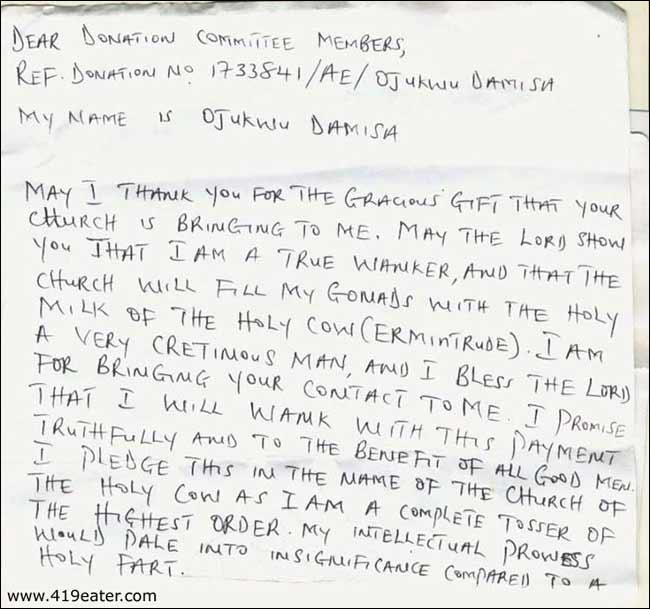 DEAR DONATION COMMITTEE MEMBERS,
REF. DONATION NO 1733841/AE/ OJUKWU DAMISA
MY NAME IS OJUKWU DAMISA
MAY I THANK YOU FOR THE GRACIOUS GIFT THAT YOUR
CHURCH IS BRINGING TO ME. MAY THE LORD SHOW
YOU THAT I AM A TRUE WANKER, AND THAT THE
CHURCH WILL FILL MY GONADS WITH THE HOLY
MILK OF THE HOLY COW (ERMINTRUDE). I AM
A VERY CRETINOUS MAN, AND I BLESS THE LORD
FOR BRINGING YOUR CONTACT TO ME. I PROMISE
THAT I WILL WANK WITH THIS PAYMENT
TRUTHFULLY AND TO THE BENEFIT OF ALL GOOD MEN.
I PLEDGE THIS IN THE NAME OF THE CHURCH OF
THE HOLY COW AS I AM A COMPLETE TOSSER OF
THE HIGHEST ORDER. MY INTELLECTUAL PROWESS
WOULD PALE INTO INSIGNIFICANCE COMPARED TO A
HOLY FART.
www.419eater.com